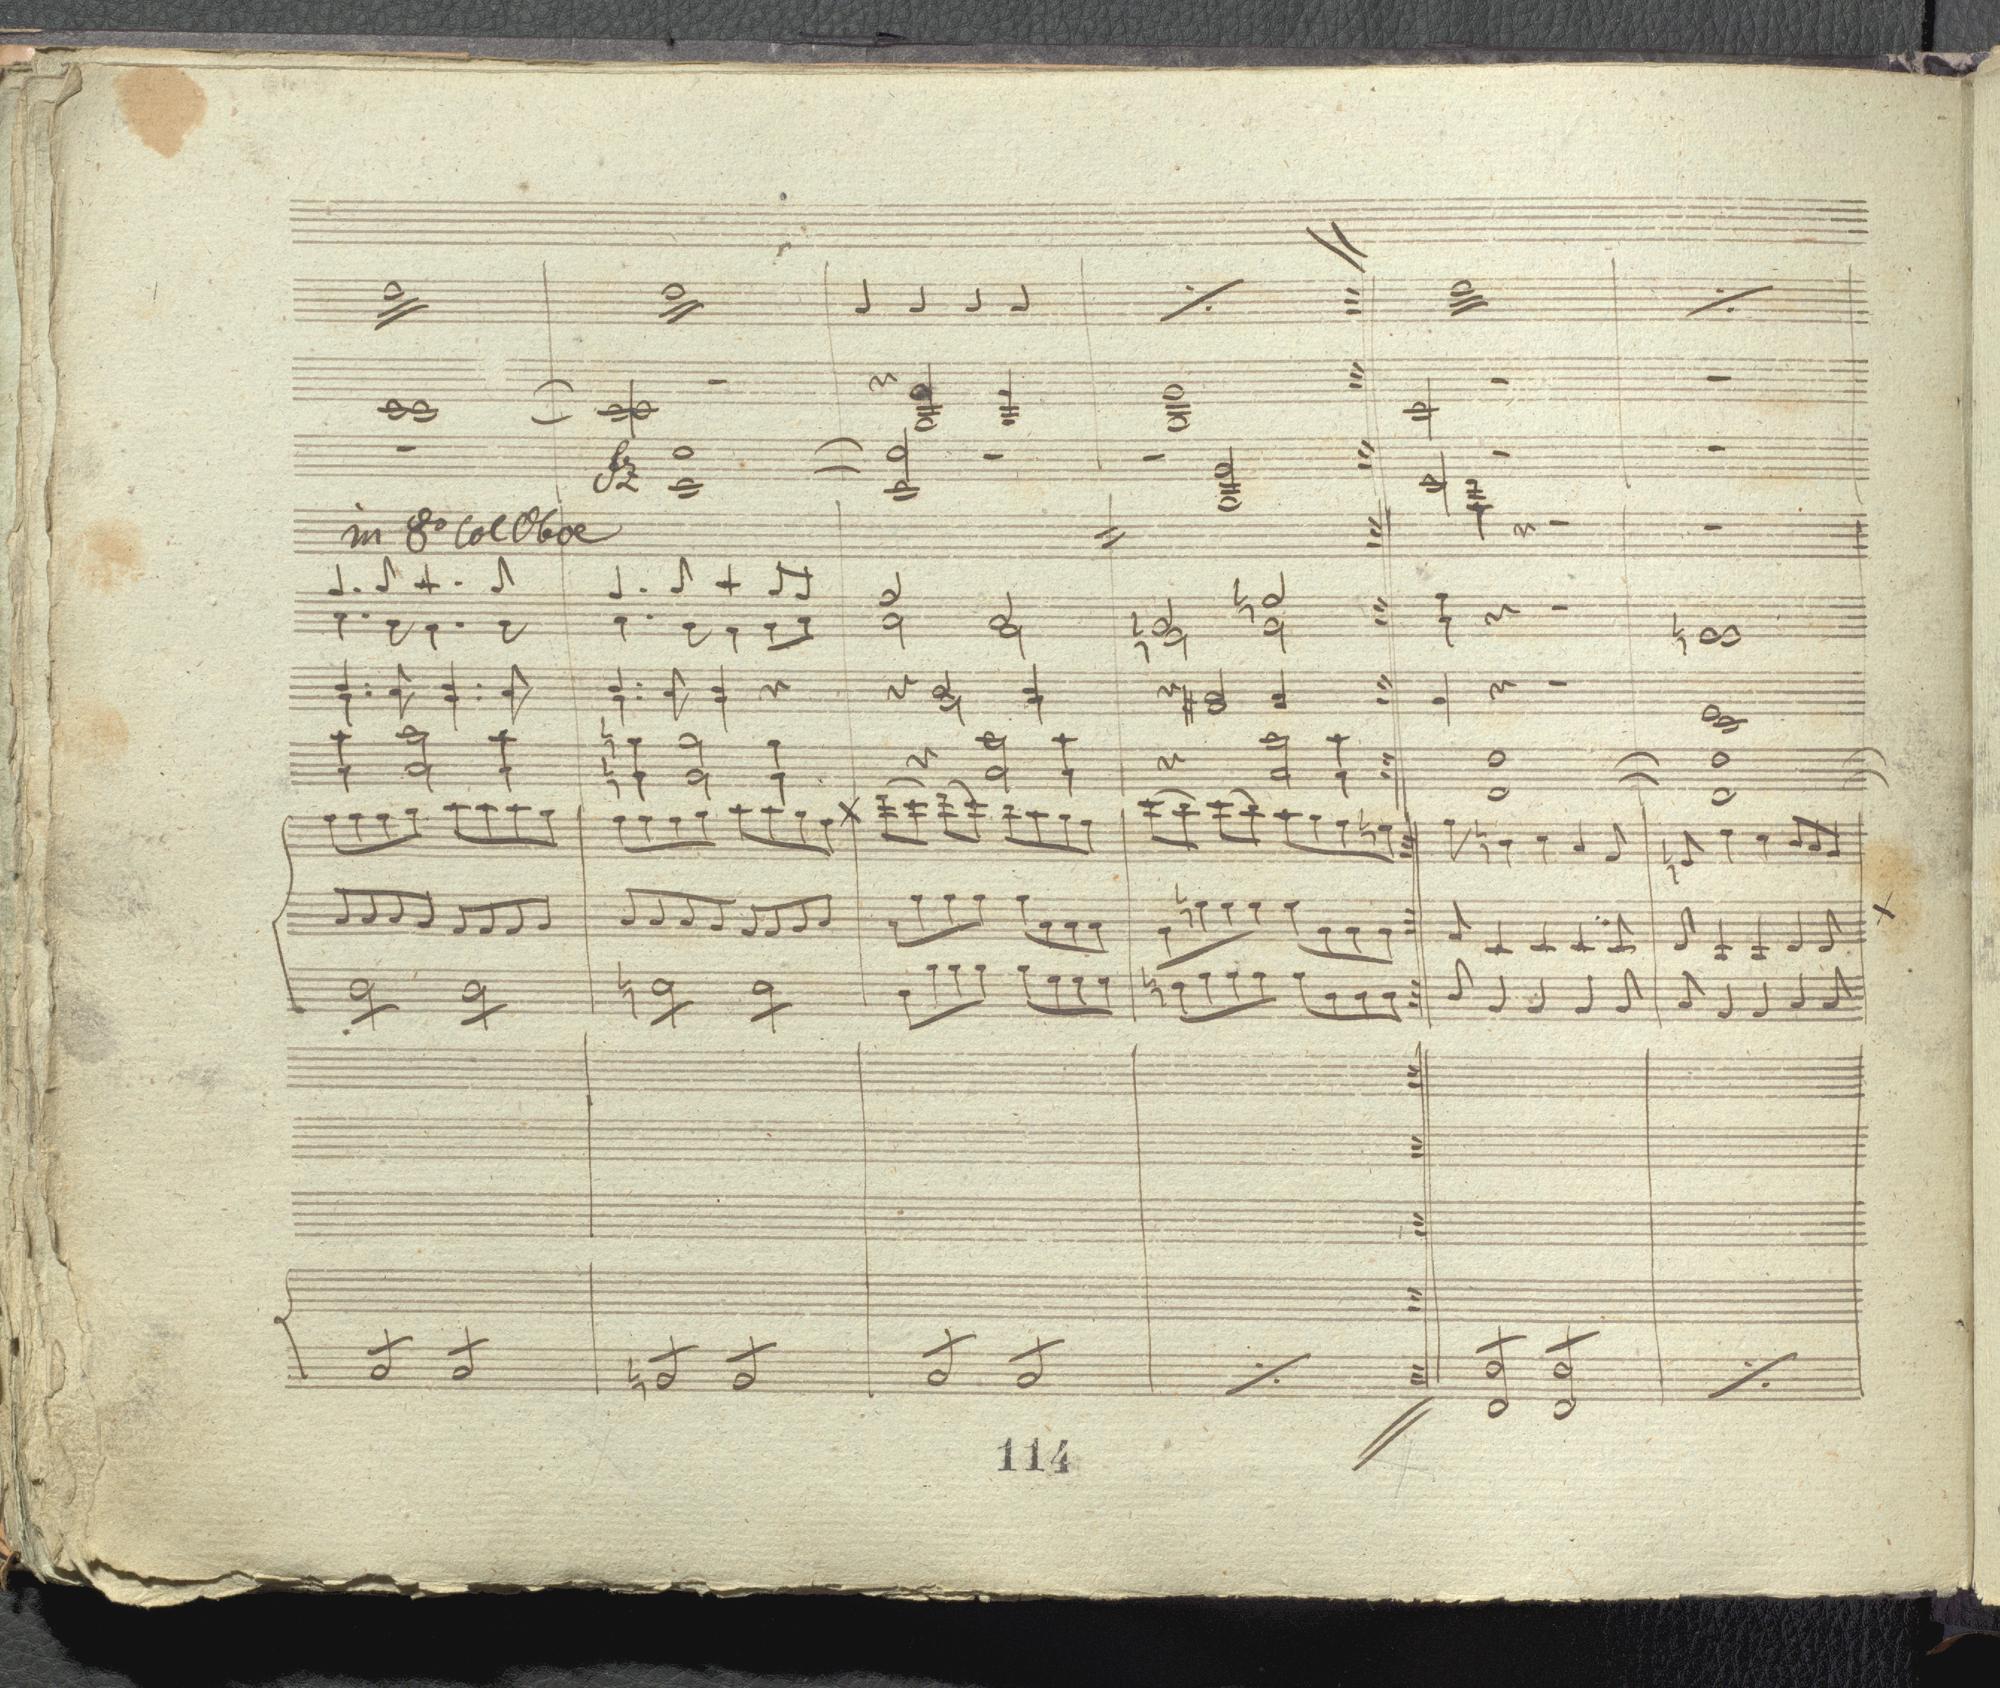 in 8º Col Oboe
fz
114